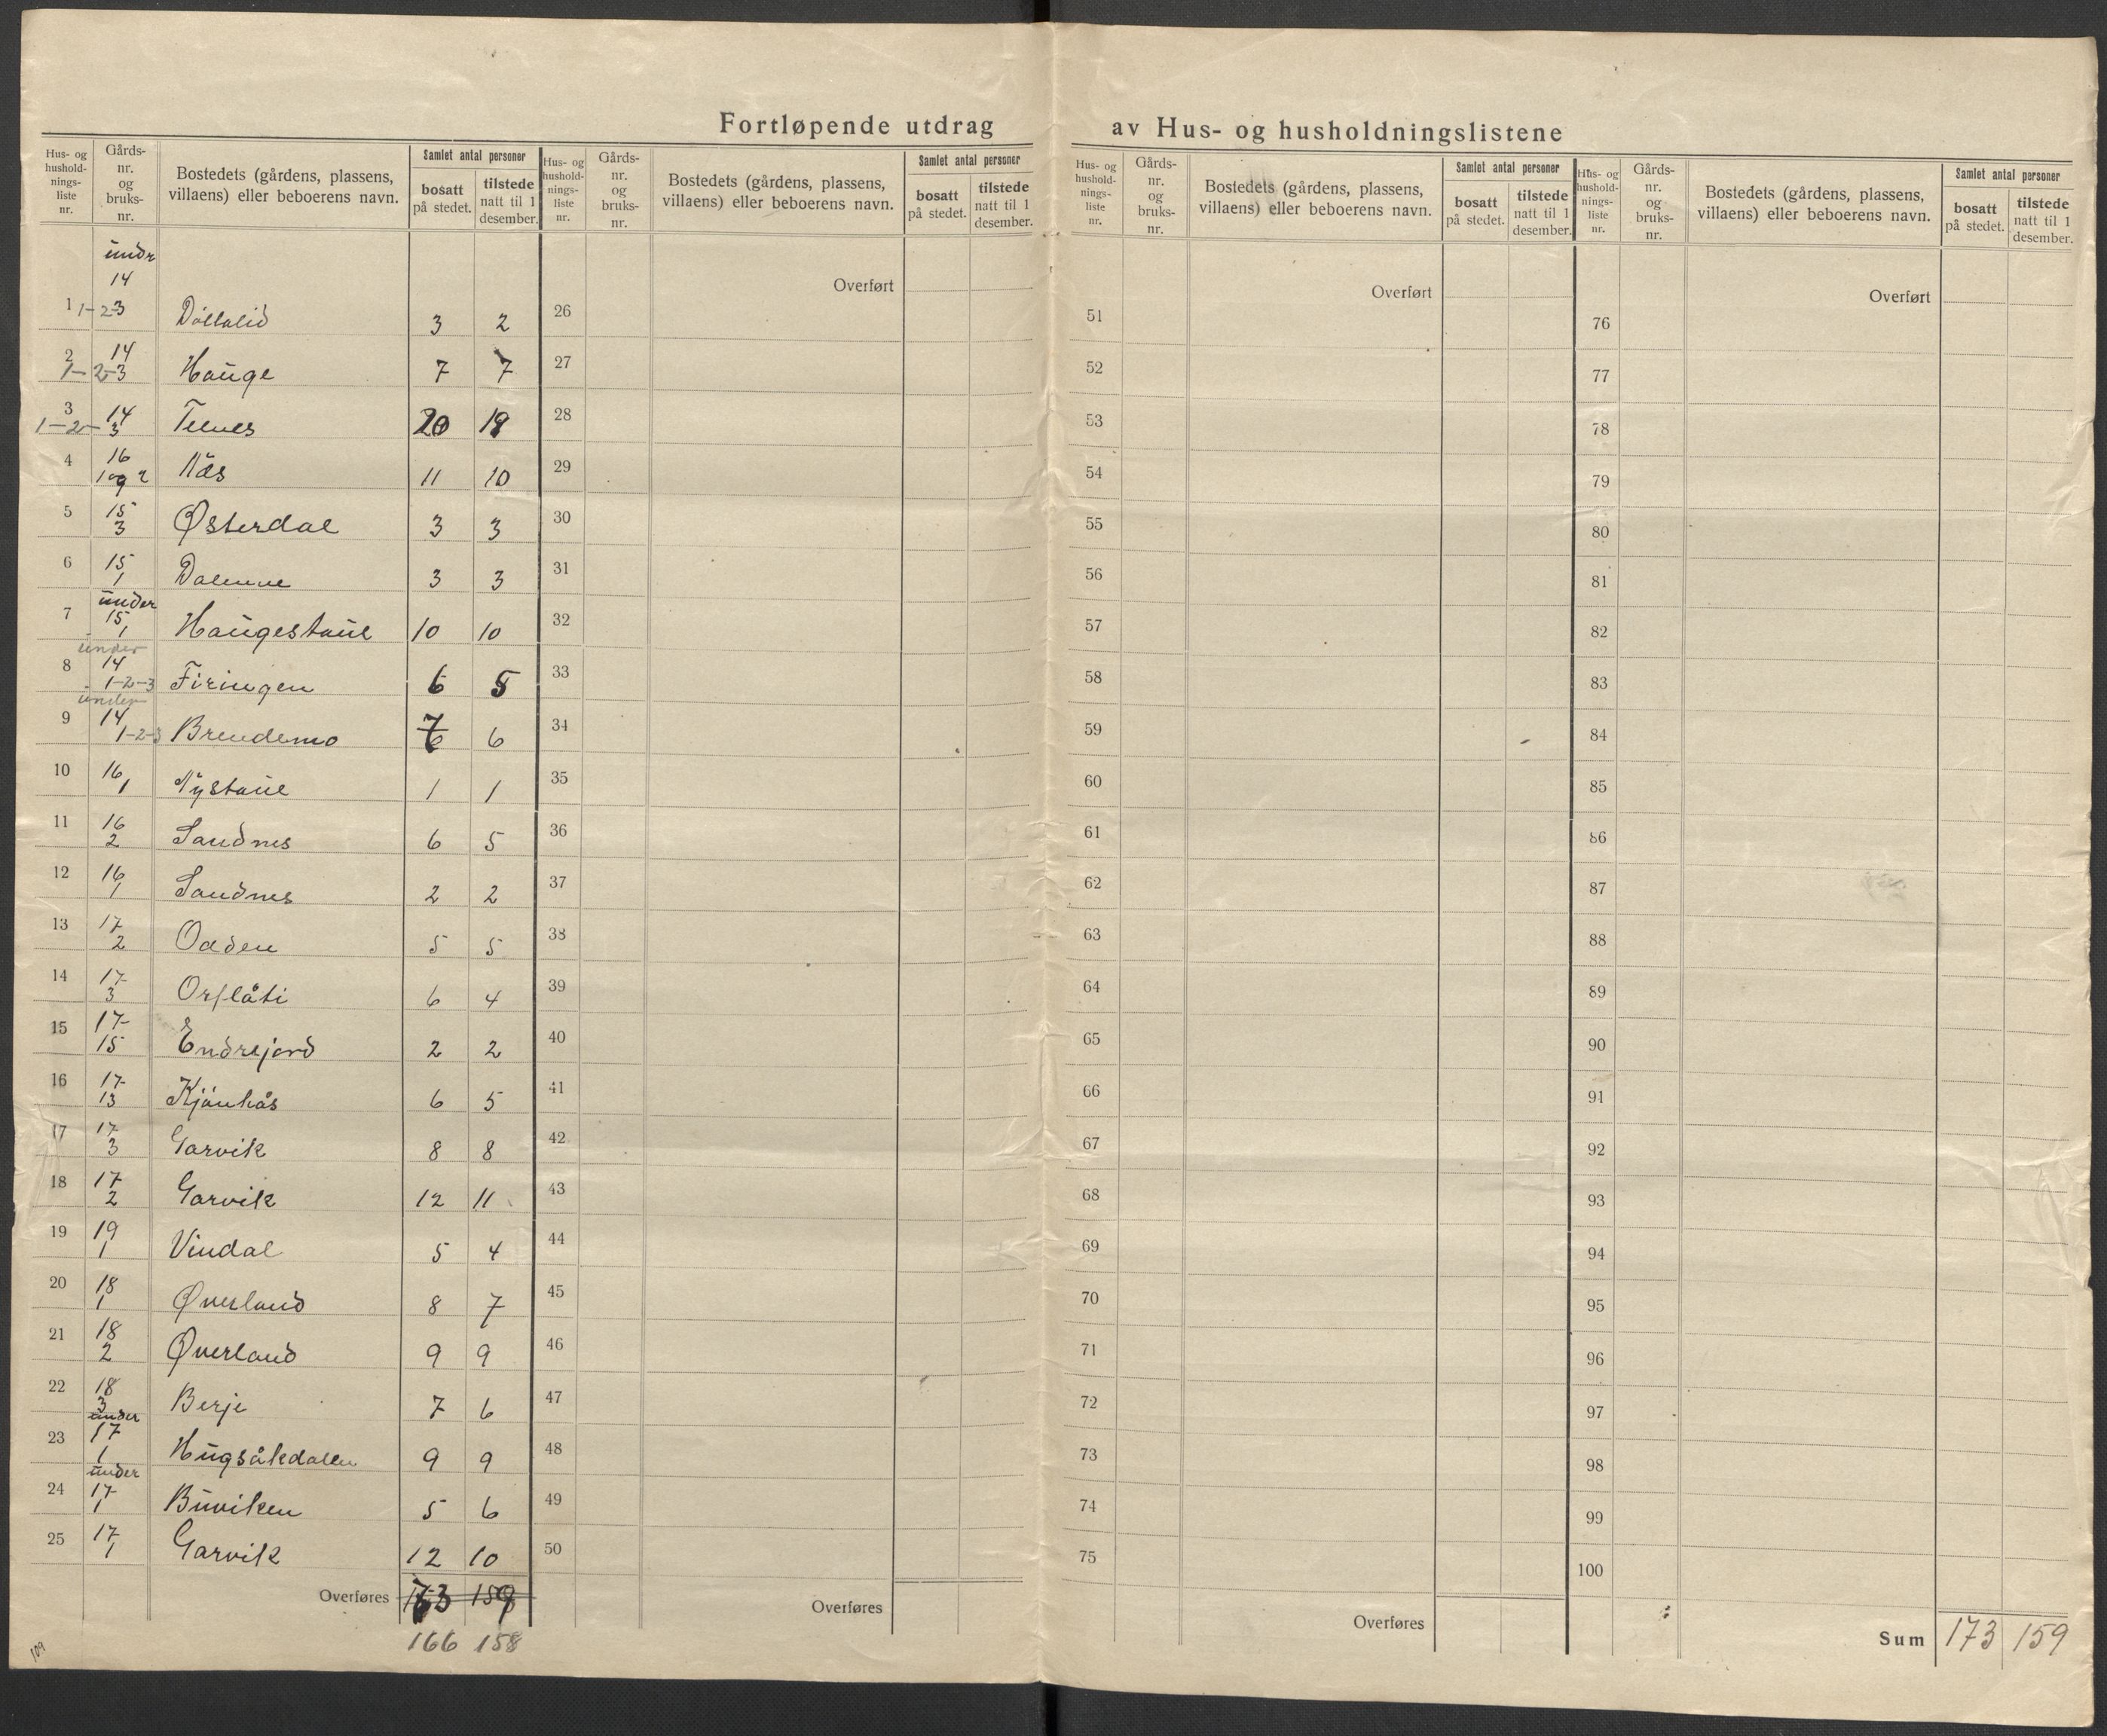 Fortløpende utdrag av Hus- og husholdningslistene
Hus- og hushold-nings-liste nr. Gårds-nr. og bruks-nr. Bostedets (gårdens, plassens, villaens) eller beboerens navn. Samlet antal personer bosatt på stedet. tilstede natt til 1 desember.
Hus- og hushold-nings-liste nr. Gårds-nr. og bruks-nr. Bostedets (gårdens, plassens, villaens) eller beboerens navn. Samlet antal personer bosatt på stedet. tilstede natt til 1 desember.
Hus- og hushold-nings-liste nr. Gårds-nr. og bruks-nr. Bostedets (gårdens, plassens, villaens) eller beboerens navn. Samlet antal personer bosatt på stedet. tilstede natt til 1 desember.
Hus- og hushold-nings-liste nr. Gårds-nr. og bruks-nr. Bostedets (gårdens, plassens, villaens) eller beboerens navn. Samlet antal personer bosatt på stedet. tilstede natt til 1 desember.
undr
14
1 1-2-3 3 2
2 14 1-2-3 Hauge 7 7
3 14 1-2-3 20 18
4 16 1 og 2 Nås 11 10
5 15 3 Østerdal 3 3
6 15 1 Dalemne 3 3
7 under 15 1 Haugestaul 10 10
8 under 14 1-2-3 Firingen 6 5
9 under 14 1-2-3 Brendemo 7 6
10 16 1 Nystaul 1 1
11 16 2 Sandnes 6 5
12 16 1 Sandnes 2 2
13 17 2 Odden 5 5
14 17 3 Orflåti 6 4
15 17 15 Endrejord 2 2
16 17 13 Kjånhås 6 5
17 17 3 Garvik 8 8
18 17 2 Garvik 12 11
19 19 1 Vindal 5 4
20 18 1 Øverland 8 7
21 18 2 Øverland 9 9
22 18 3 Berje 7 6
23 under 17 1 Hugsåkdalen 9 9
24 under 17 1 Buviken 5 6
25 17 1 Garvik 12 10
Overføres 173 159
166 158
109
Overført
26
27
28
29
30
31
32
33
34
35
36
37
38
39
40
41
42
43
44
45
46
47
48
49
50
Overføres
Overført
51
52
53
54
55
56
57
58
59
60
61
62
63
64
65
66
67
68
69
70
71
72
73
74
75
Overføres
Overført
76
77
78
79
80
81
82
83
84
85
86
87
88
89
90
91
92
93
94
95
96
97
98
99
100
Sum 173 159